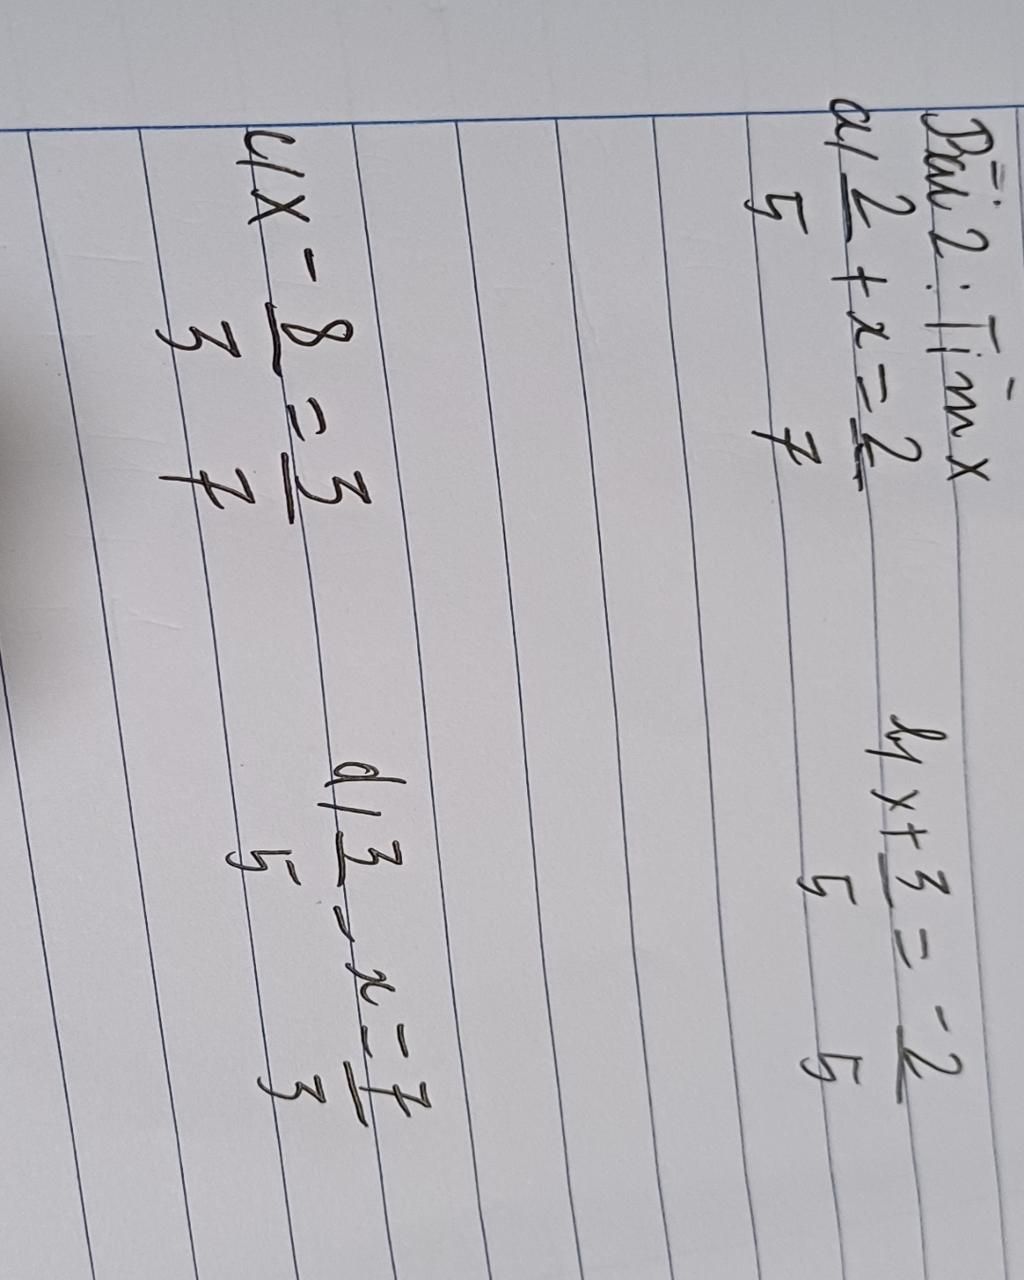 Bài 2: Tìm x
a/ 2/5 + x = 2/7    b/ x + 3/5 = -2/5
c/ x - 8/3 = 3/7    d/ 3/5 - x = 7/3